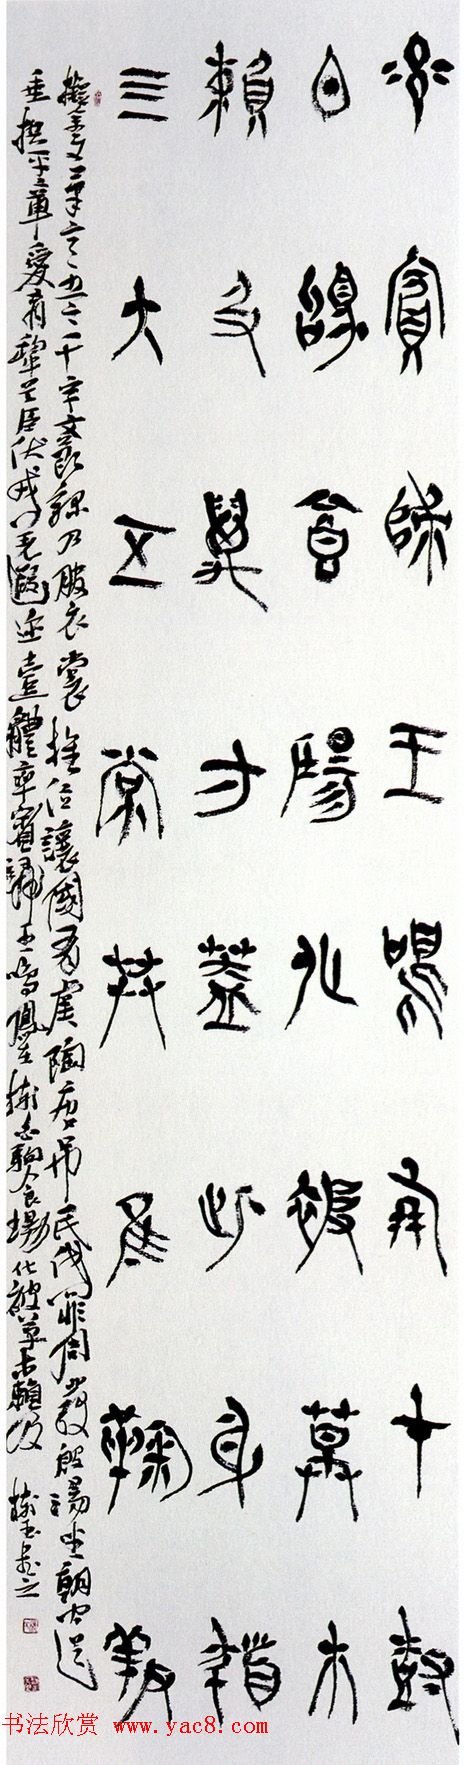 率賓歸王鳴鳳在樹
白駒食場化被草木
賴及萬方蓋此身髮
亖大五常恭惟鞠養
千字文 乃服衣裳推位讓國有虞陶唐弔民伐罪周發殷湯坐朝問道
垂拱平章愛育黎首臣伏戎羌遐邇壹體率賓歸王鳴鳳在樹白駒食場化被草木賴及
书法欣赏 www.yac8.com